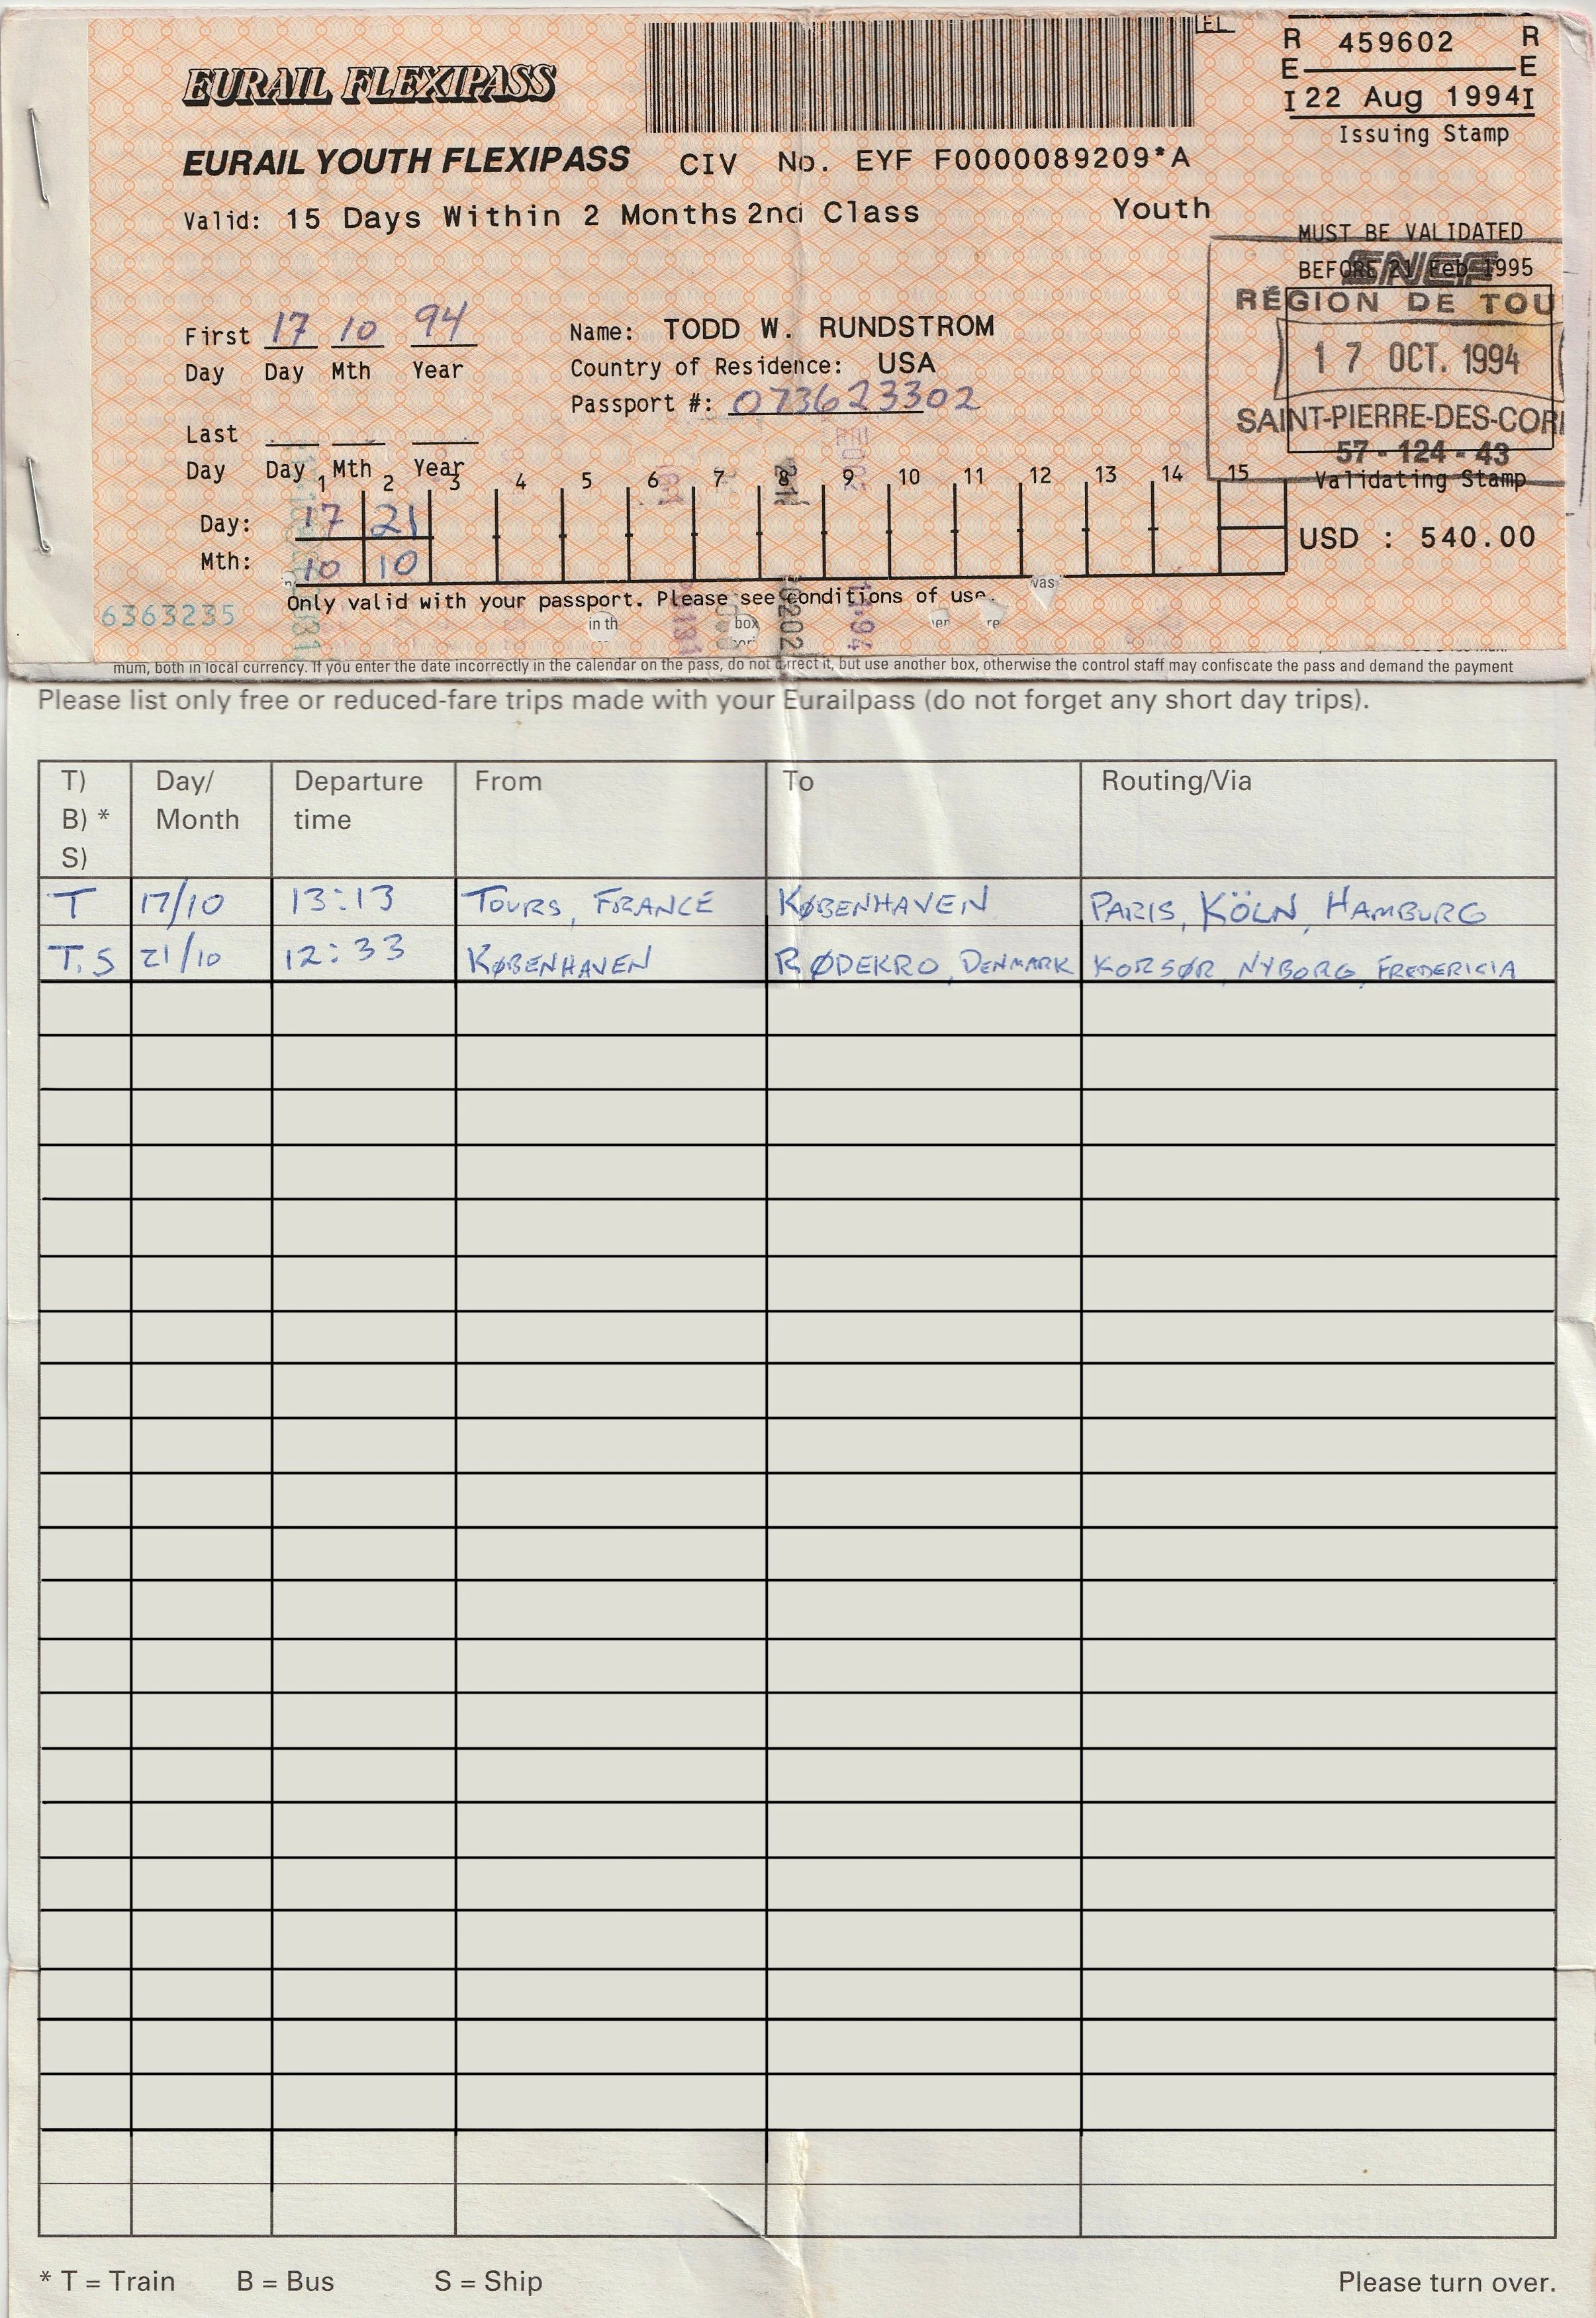 EL
R 459602 R
E E
I 22 Aug 1994 I
Issuing Stamp
EURAIL FLEXIPASS
EURAIL YOUTH FLEXIPASS CIV No. EYF F0000089209*A
Valid: 15 Days Within 2 Months 2nd Class Youth
MUST BE VALIDATED
BEFORE 21 Feb 1995
SNCF
RÉGION DE TOU
17 OCT. 1994
SAINT-PIERRE-DES-COR
57-124-43
Validating Stamp
First 17 10 94
Day Day Mth Year
Name: TODD W. RUNDSTROM
Country of Residence: USA
Passport #: 073623302
Last
Day Day Mth Year
1 2 3 4 5 6 7 8 9 10 11 12 13 14 15
Day: 17 21
Mth: 10 10
USD : 540.00
Only valid with your passport. Please see conditions of use.
was
6363235
in th box
mum, both in local currency. If you enter the date incorrectly in the calendar on the pass, do not correct it, but use another box, otherwise the control staff may confiscate the pass and demand the payment
Please list only free or reduced-fare trips made with your Eurailpass (do not forget any short day trips).
T) Day/ Departure From To Routing/Via
B) * Month time
S)
T 17/10 13:13 TOURS, FRANCE KØBENHAVEN PARIS, KÖLN, HAMBURG
T.S 21/10 12:33 KØBENHAVEN RØDEKRO, DENMARK KORSØR, NYBORG, FREDERICIA
* T = Train B = Bus S = Ship Please turn over.